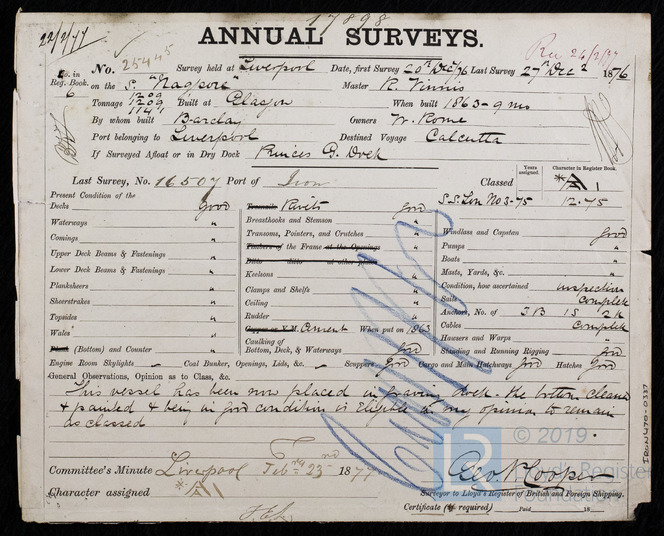 17898
ANNUAL SURVEYS.
22/2/77
Rec 24/2/77
No. 25445 Survey held at Liverpool Date, first Survey 20th Dec/76 Last Survey 27th Dec 1876
No. in Reg. Book. 6
on the S. "Nagpore" Master R.
Tonnage 1209 1209 1141 Built at Glasgow When built 1863-9 mo
By whom built Barclay Owners W. Rome
Port belonging to Liverpool Destined Voyage Calcutta
If Surveyed Afloat or in Dry Dock Princes G. Dock
Last Survey, No. 16507 Port of Iron Classed
Years assigned. Character in Register Book.
S.S. Lon No 3-75 *A 1 12.75
Present Condition of the
Decks Good
Waterways "
Comings "
Upper Deck Beams & Fastenings "
Lower Deck Beams & Fastenings "
Planksheers "
Sheerstrakes "
Topsides "
Wales "
Plank (Bottom) and Counter "
Treenails Rivits Good
Breasthooks and Stemson "
Transoms, Pointers, and Crutches "
Timbers of the Frame at the Openings "
Ditto ditto at other places
Keelsons "
Clamps and Shelfs "
Ceiling "
Rudder "
Copper or Y.M. Cement When put on 1863
Caulking of Bottom, Deck, & Waterways Good
Windlass and Capstan Good
Pumps "
Boats "
Masts, Yards, &c. "
Condition, how ascertained inspection
Sails Complete
Anchors, No. of 3 B 1 S 2 K
Cables Complete
Hausers and Warps "
Standing and Running Rigging Good
Engine Room Skylights — Coal Bunker, Openings, Lids, &c. — Scuppers Good Cargo and Main Hatchways Good Hatches Good
General Observations, Opinion as to Class, &c.
This vessel has been now placed in graving Dock - the bottom cleaned
& painted & being in good condition is Eligible in my opinion to remain
as classed.
Committee's Minute Liverpool Feby 23rd 1877
Character assigned *A1
Geo. N Cooper
Surveyor to Lloyd's Register of British and Foreign Shipping.
Certificate (if required) Paid 18
© 2019
Lloyd's Register
Foundation
IRON470-0337